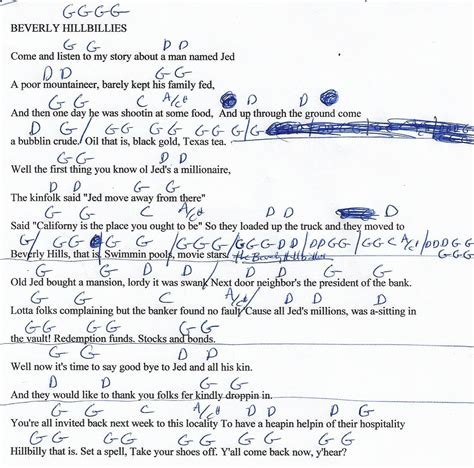 G G G G
BEVERLY HILLBILLIES
G G D D
Come and listen to my story about a man named Jed
D D G G
A poor mountaineer, barely kept his family fed,
G G C A/C# D D
And then one day he was shootin at some food, And up through the ground come
D G / G G G G G G G G / G
a bubblin crude. Oil that is, black gold, Texas tea.
G G D D
Well the first thing you know ol Jed's a millionaire,
D D G G
The kinfolk said "Jed move away from there"
G C A/C# D D D
Said "Californy is the place you ought to be" So they loaded up the truck and they moved to
G / G G G / G G G / G G G D D / D D G G / G G C A/C# / D D D G G
Beverly Hills, that is, Swimmin pools, movie stars. The Beverly Hillbillies G G G G
G G D D D D G G
Old Jed bought a mansion, lordy it was swank Next door neighbor's the president of the bank.
G G C A/C# D D D G
Lotta folks complaining but the banker found no fault Cause all Jed's millions, was a-sitting in
G G G G G G
the vault! Redemption funds. Stocks and bonds.
G G D D
Well now it's time to say good bye to Jed and all his kin.
D D G G
And they would like to thank you folks fer kindly droppin in.
G G C A/C# D D D G
You're all invited back next week to this locality To have a heapin helpin of their hospitality
G G G G G G G G G G
Hillbilly that is. Set a spell, Take your shoes off. Y'all come back now, y'hear?